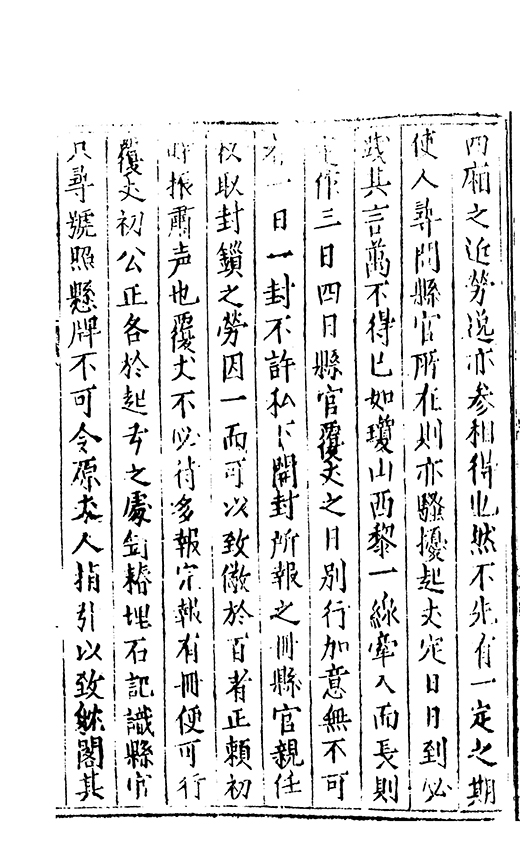 四廂之近勞逸亦參相得也然不先有一定之期
使人尋問縣官所在則亦騷擾起丈定日日到必
踐其言萬不得已如瓊山西黎一線窄入而長則
定作三日四日縣官覆丈之日別行加意無不可
者一日一封不許私下開封所報之冊縣官親任
收取封鎖之勞因一而可以致儆於百者正賴初
時振肅声也覆丈不必待多報完報有冊便可行
覆丈初公正各於起字之處 椿埋石記識縣官
只尋號照懸牌不可令原丈人指引以致躲閣其